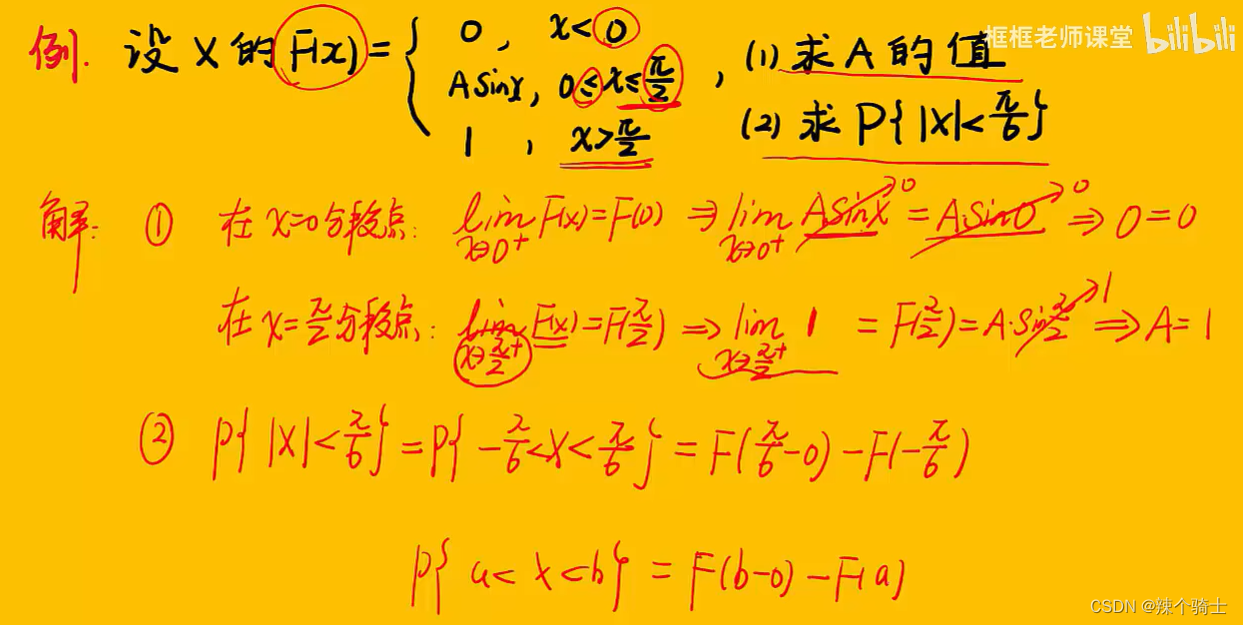 框框老师课堂 bilibili
例. 设 X 的 F(x) = { 0, x<0
ASinx, 0≤x≤π/2 , (1) 求 A 的值
1 , x>π/2 (2) 求 P{|X|<π/6}
解: ① 在 x=0 分段点: lim x→0⁺ F(x)=F(0) ⇒ lim x→0⁺ ASinx →0 = ASin0 →0 ⇒ 0=0
在 x=π/2 分段点: lim x→π/2⁺ F(x)=F(π/2) ⇒ lim x→π/2⁺ 1 = F(π/2)=A·Sinπ/2 →1 ⇒ A=1
② P{|X|<π/6} = P{-π/6<X<π/6} = F(π/6-0)-F(-π/6)
P{a<X<b} = F(b-0)-F(a)
CSDN @辣个骑士